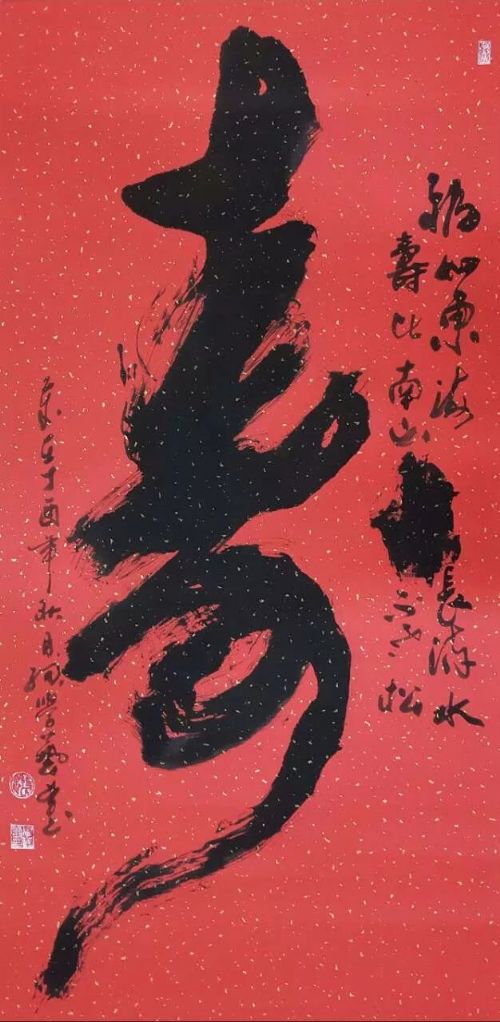 寿
福如東海長流水
壽比南山不老松
歲在丁酉年秋月